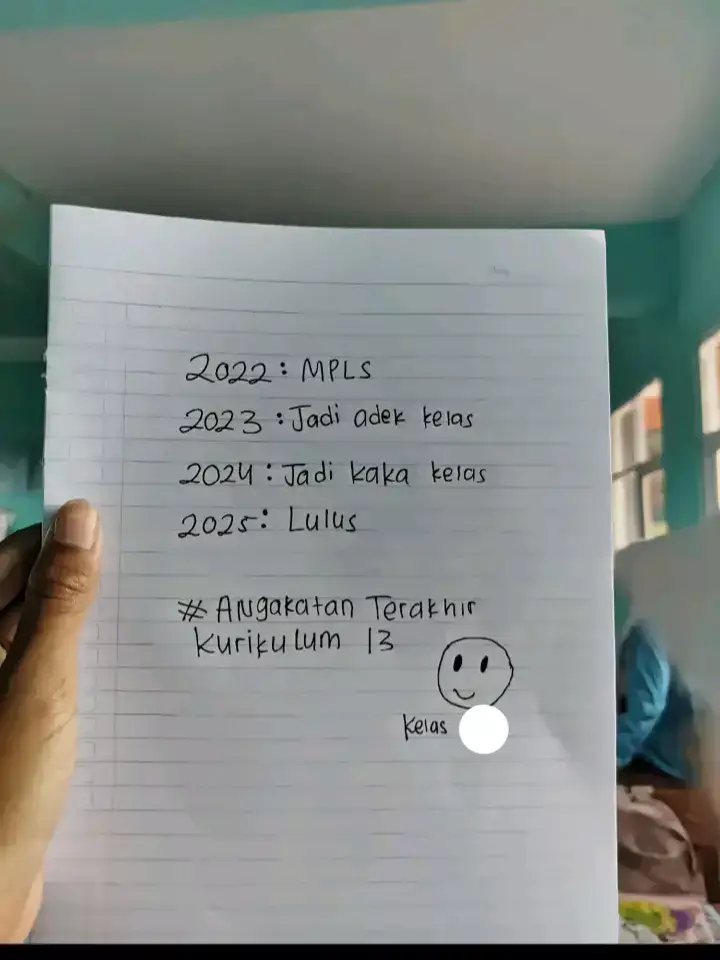 2022: MPLS
2023: Jadi adek kelas
2024: Jadi kaka kelas
2025: Lulus
# ANgakatan Terakhir
Kurikulum 13
Kelas